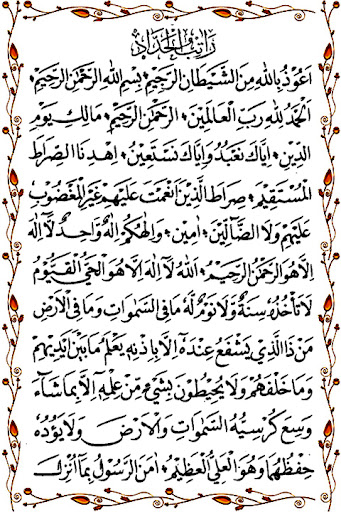 راتب الحداد
اعوذ بالله من الشيطان الرجيم • بسم الله الرحمن الرحيم •
الحمد لله رب العالمين • الرحمن الرحيم • مالك يوم
الدين • اياك نعبد واياك نستعين • اهدنا الصراط
المستقيم • صراط الذين انعمت عليهم غير المغضوب
عليهم ولا الضالين • امين • والهكم اله واحد لا اله
الا هو الرحمن الرحيم • الله لا اله الا هو الحي القيوم
لا تأخذه سنة ولا نوم له ما في السموات وما في الارض
من ذا الذي يشفع عنده الا باذنه يعلم ما بين ايديهم
وما خلفهم ولا يحيطون بشيء من علمه الا بما شاء
وسع كرسيه السموات والارض ولا يؤده
حفظهما وهو العلي العظيم • امن الرسول بما انزل